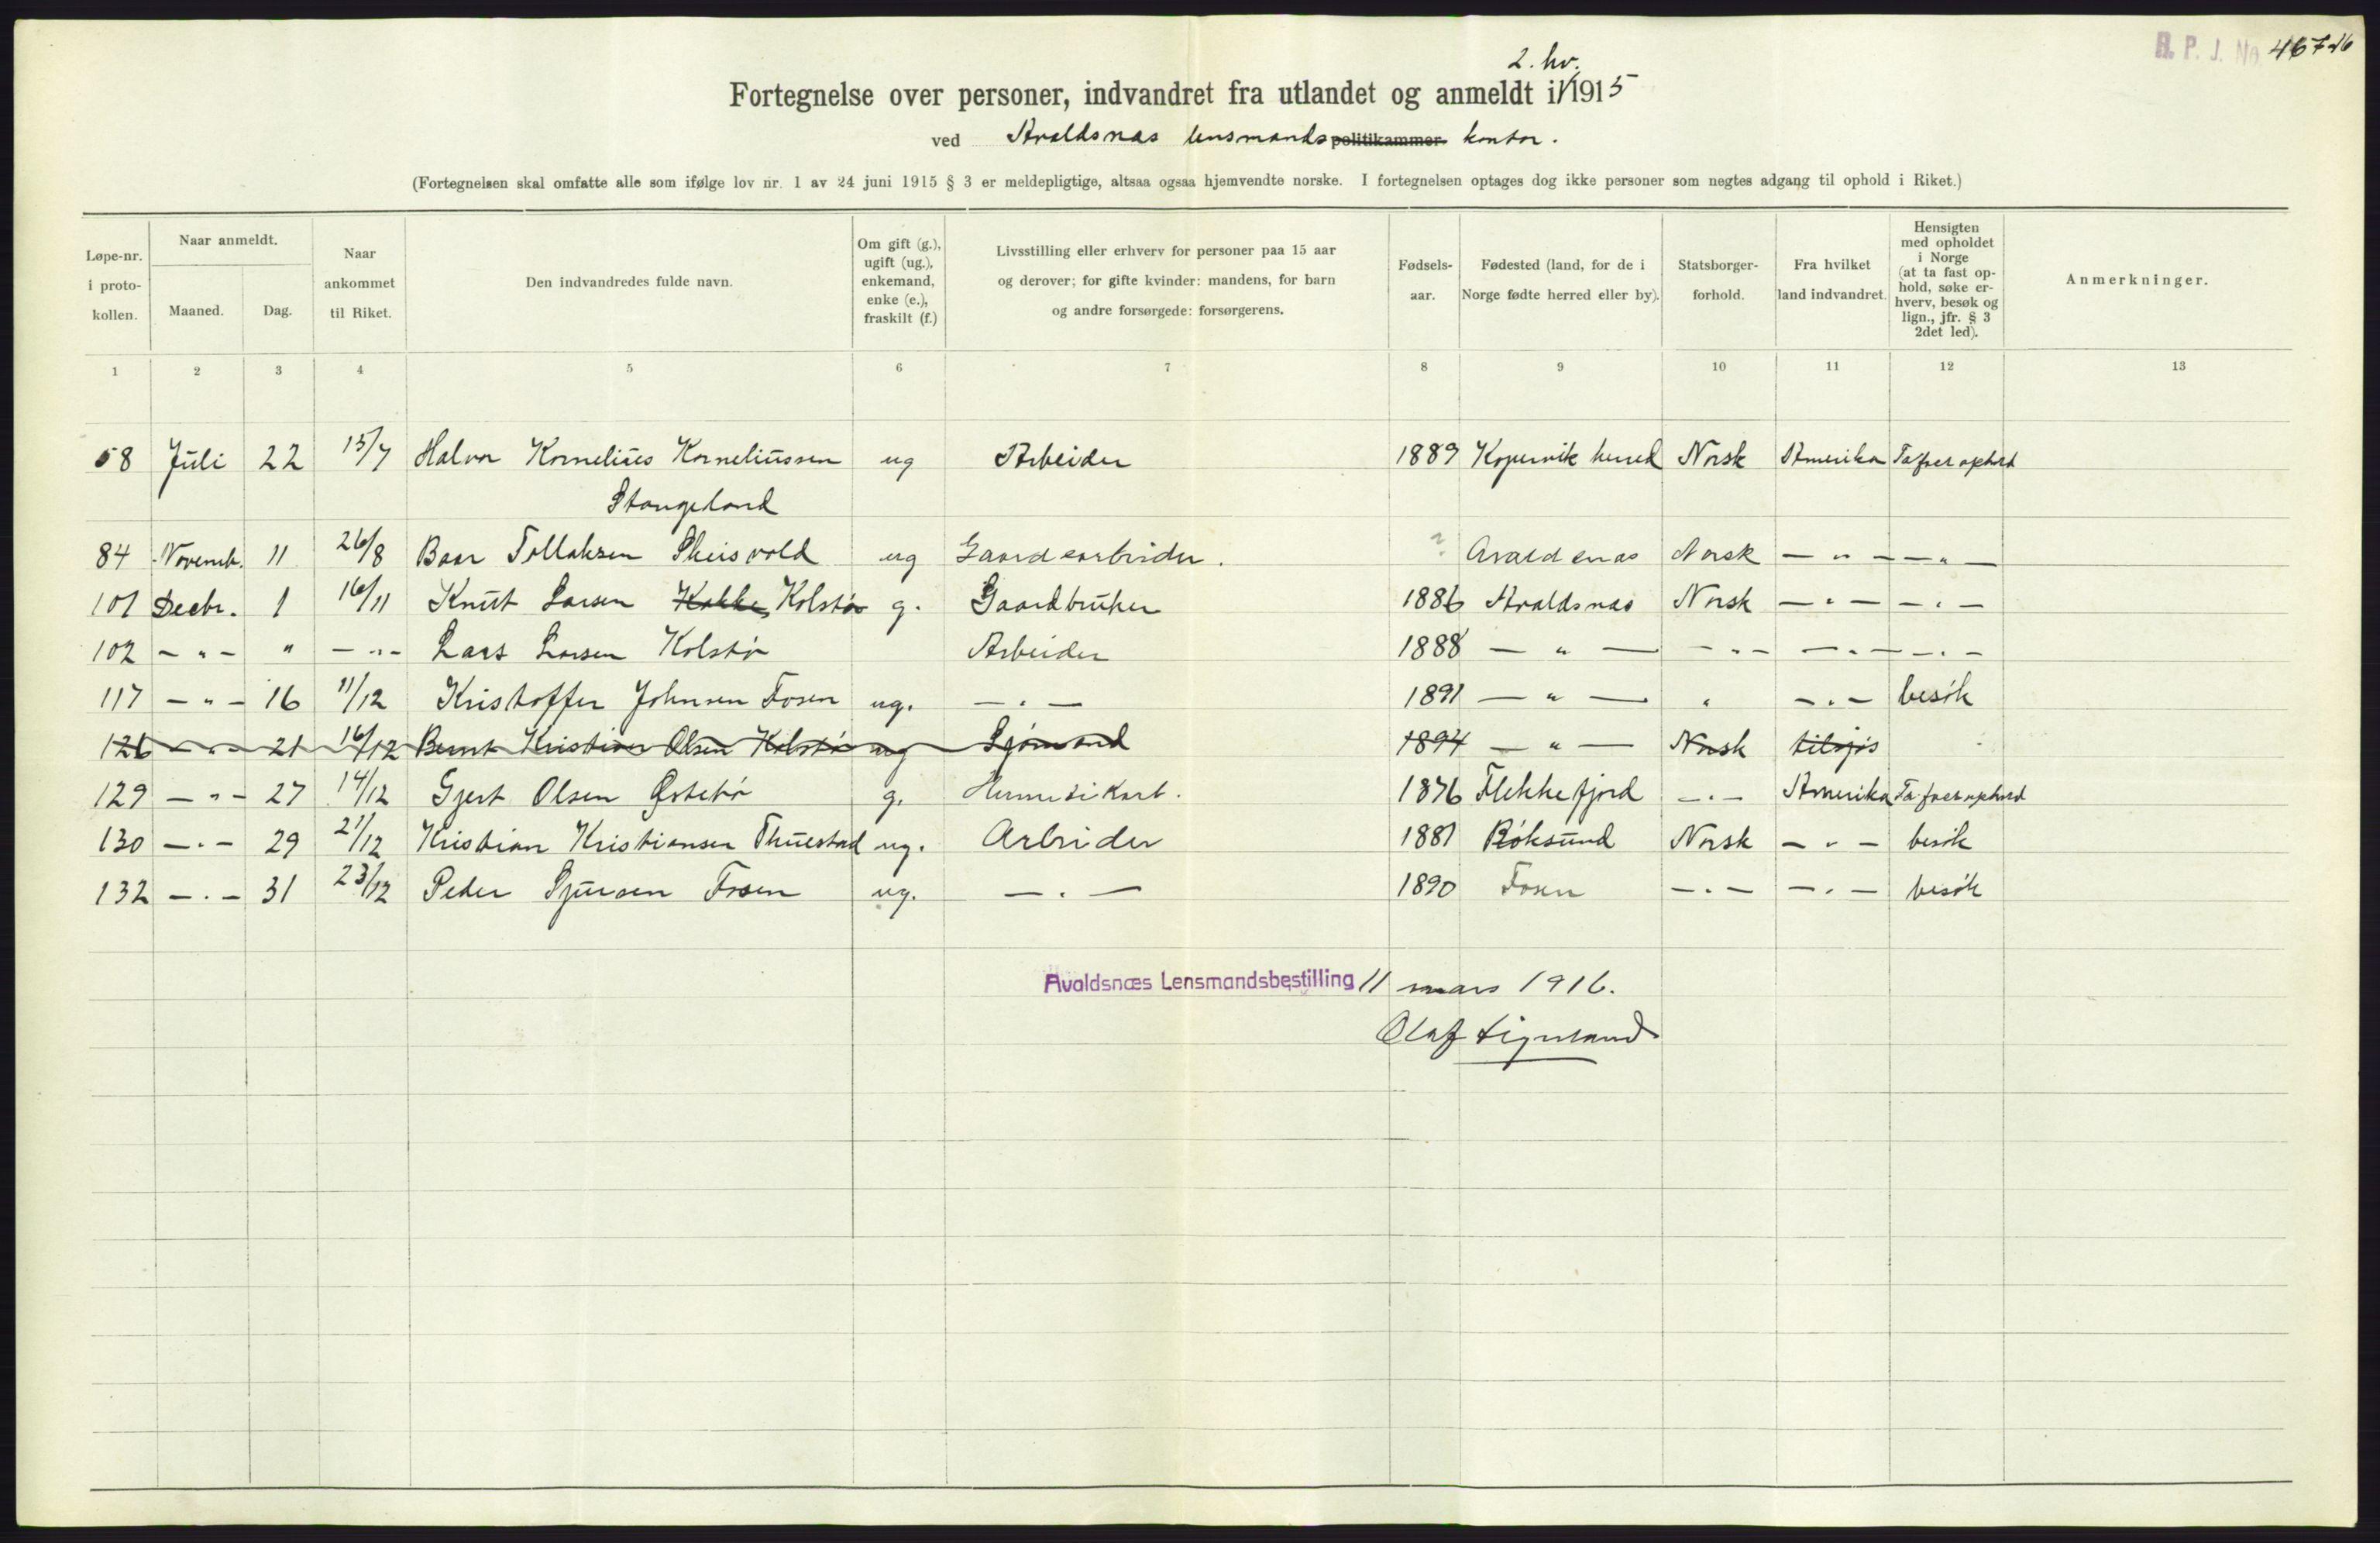 R. P. J. No. 467-16
2. hv.
Fortegnelse over personer, indvandret fra utlandet og anmeldt i 1915
ved Avaldsnas lensmands politikammer kontor.
(Fortegnelsen skal omfatte alle som ifølge lov nr. 1 av 24 juni 1915 § 3 er meldepligtige, altsaa ogsaa hjemvendte norske. I fortegnelsen optages dog ikke personer som negtes adgang til ophold i Riket.)
Løpe-nr. i proto-kollen.
Naar anmeldt.
Maaned.
Dag.
Naar ankommet til Riket.
Den indvandredes fulde navn.
Om gift (g.), ugift (ug.), enkemand, enke (e.), fraskilt (f.)
Livsstilling eller erhverv for personer paa 15 aar
og derover; for gifte kvinder: mandens, for barn
og andre forsørgede: forsørgerens.
Fødsels-aar.
Fødested (land, for de i
Norge fødte herred eller by).
Statsborger-forhold.
Fra hvilket
land indvandret.
Hensigten
med opholdet
i Norge
(at ta fast op-
hold, søke er-
hverv, besøk og
lign., jfr. § 3
2det led).
Anmerkninger.
1 2 3 4 5 6 7 8 9 10 11 12 13
58 Juli 22 15/7 Halvor Kornelius Korneliussen ug Arbeider 1889 Kopervik herred Norsk Amerika Ta fast ophold
Stangeland
84 Novemb. 11 26/8 Baar Tollaksen Skeisvold ug Gaardsarbeider. ? Avaldsnas Norsk — " — — " —
101 Decbr. 1 16/11 Knut Larsen Kolstø g. Gaardbruker 1886 Avaldsnas Norsk — " — — " —
102 — " — " — " — Lars Larsen Kolstø Arbeider 1888 — " — — " — — " — — " —
117 — " — 16 11/12 Kristoffer Johnsen Fosen ug. — " — 1891 — " — " — " — besøk
126 — " — 21 16/12 Bernt Kristian Olsen Kolstø ug Sjømand 1894 — " — Norsk tilsjøs
129 — " — 27 14/12 Gjert Olsen Østebø g. Hermetikarb. 1876 Flekkefjord — " — Amerika Ta fast ophold
130 — " — 29 21/12 Kristian Kristiansen Thuestad ug. Arbeider 1881 Røksund Norsk — " — besøk
132 — " — 31 23/12 Peder Sjursen Fosen ug. — " — 1890 Fosen — " — — " — besøk
Avaldsnæs Lensmandsbestilling 11 mars 1916.
Olaf